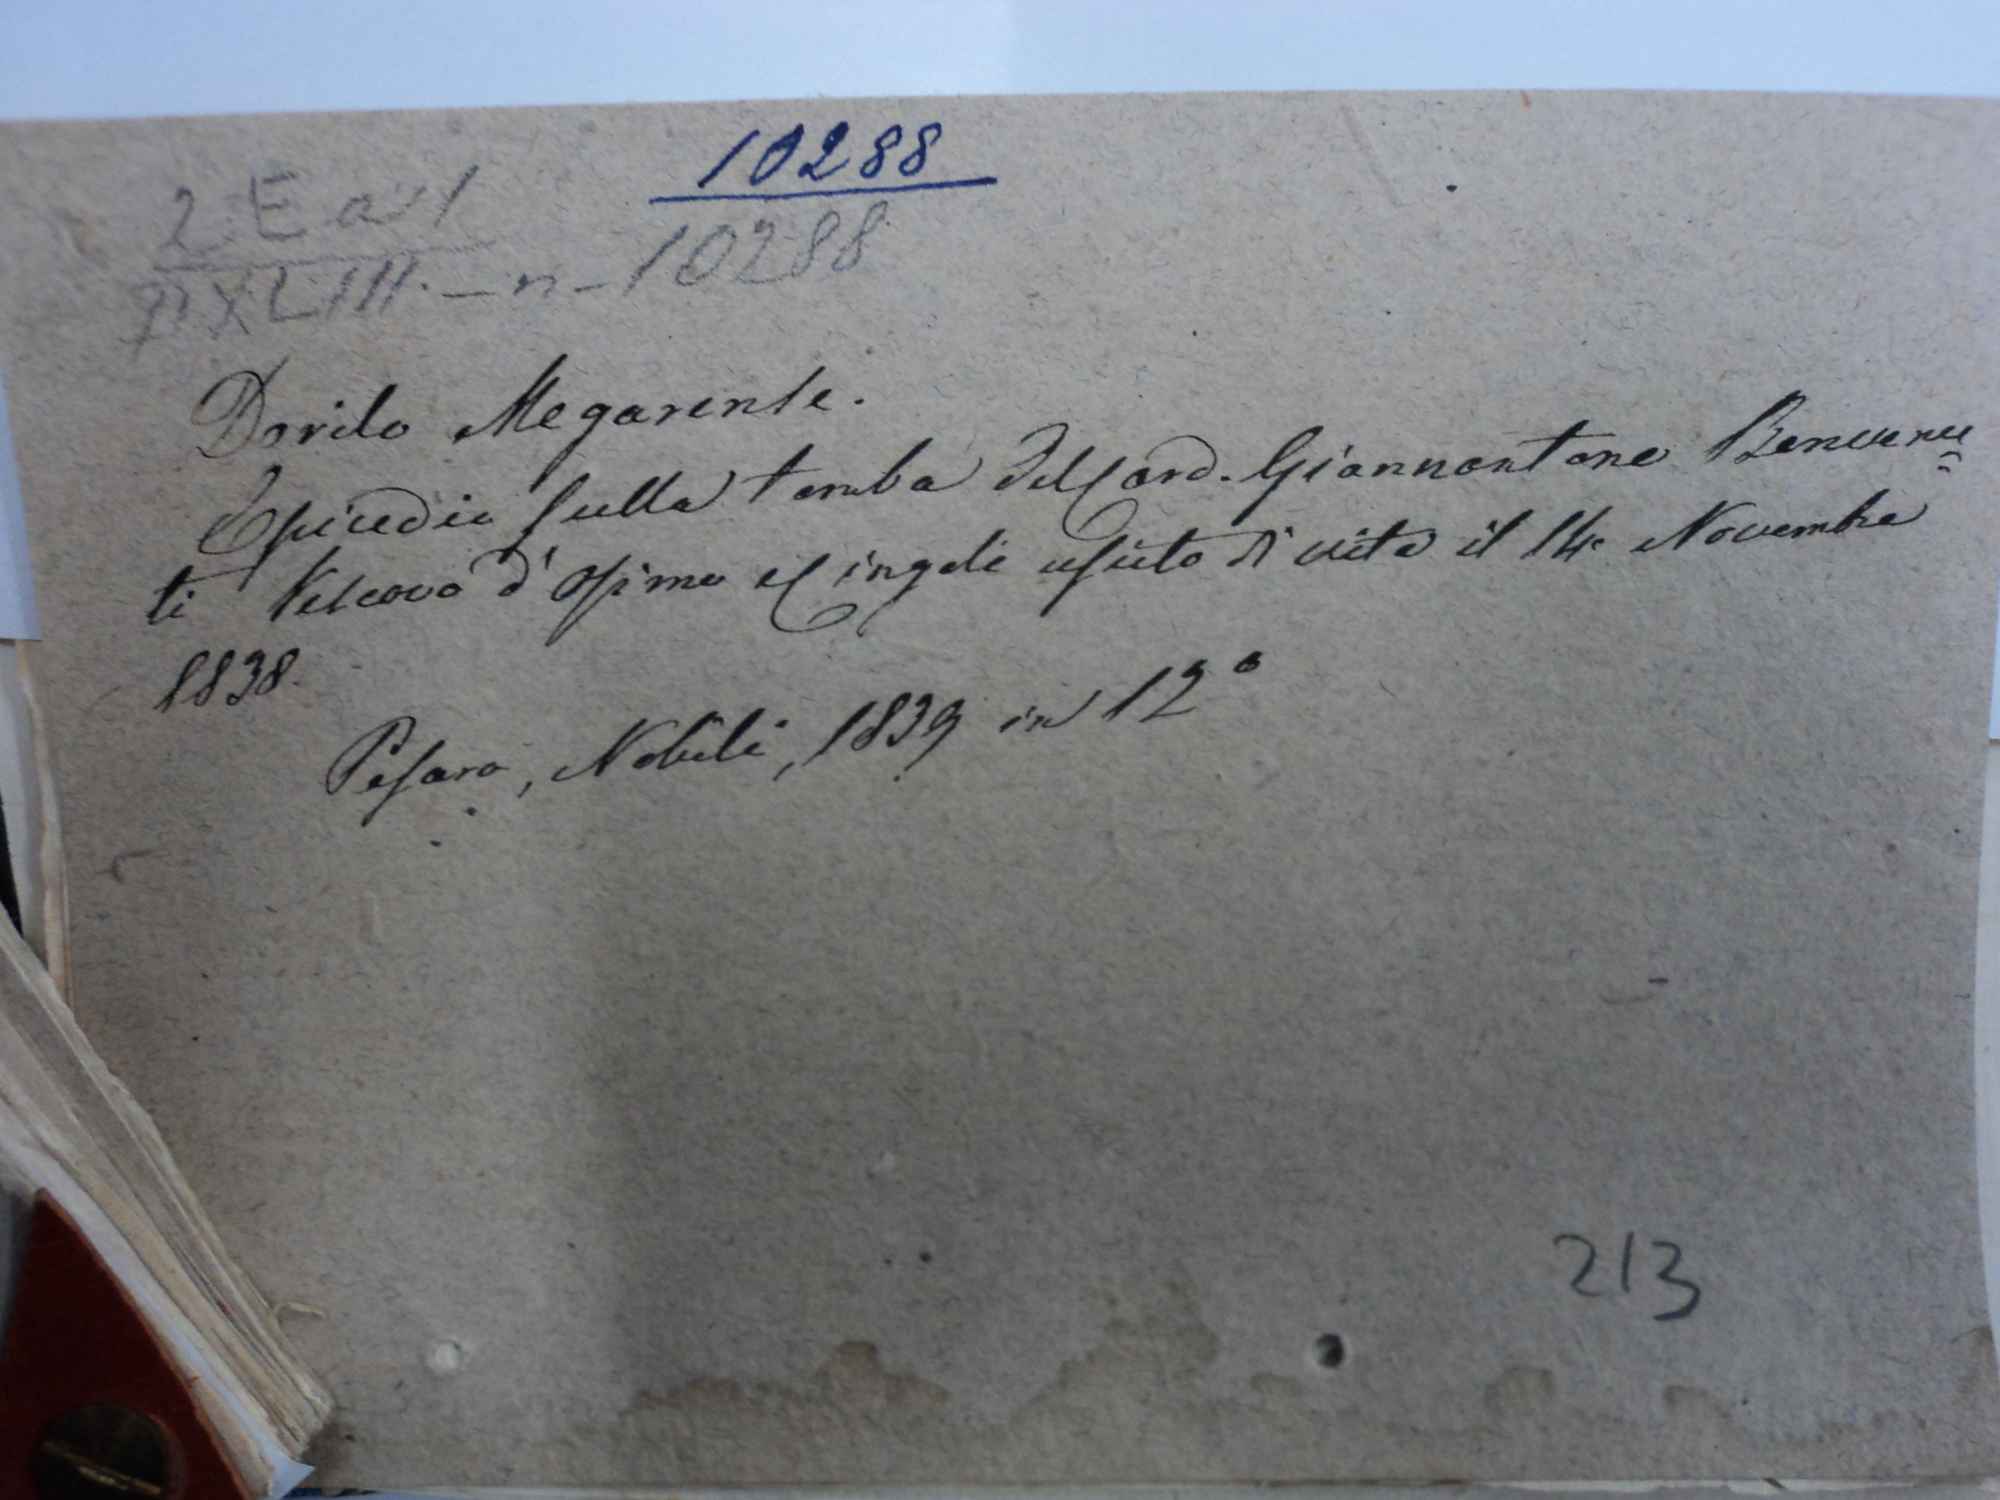 10288
2 E a 1
XLIII. - n - 10288
Dorilo Megarense.
Epicedio sulla tomba del Card. Giannantone Benvenu=
ti Vescovo d'Osimo e Cingoli uscito di vita il 14. Novembre
1838.
Pesaro, Nobili, 1839 in 12°
213